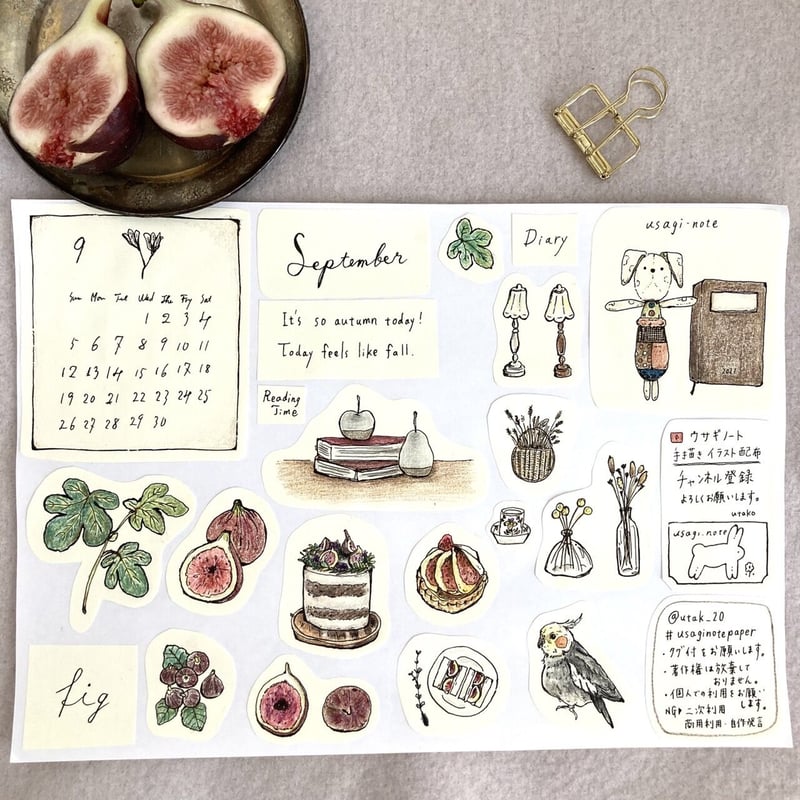 9
Sun Mon Tue Wed Thu Fry Sat
1 2 3 4
5 6 7 8 9 10 11
12 13 14 15 16 17 18
19 20 21 22 23 24 25
26 27 28 29 30
September
It's so autumn today!
Today feels like fall.
Reading
Time
Diary
usagi-note
2021
ウサギノート
手描き イラスト配布
チャンネル登録
よろしくお願いします。
utako
usagi.note
fig
@utak_20
# usaginotepaper
・タグ付をお願いします。
・著作権は放棄して
おりません。
・個人での利用をお願い
します。
NG▶ 二次利用
商用利用・自作発言